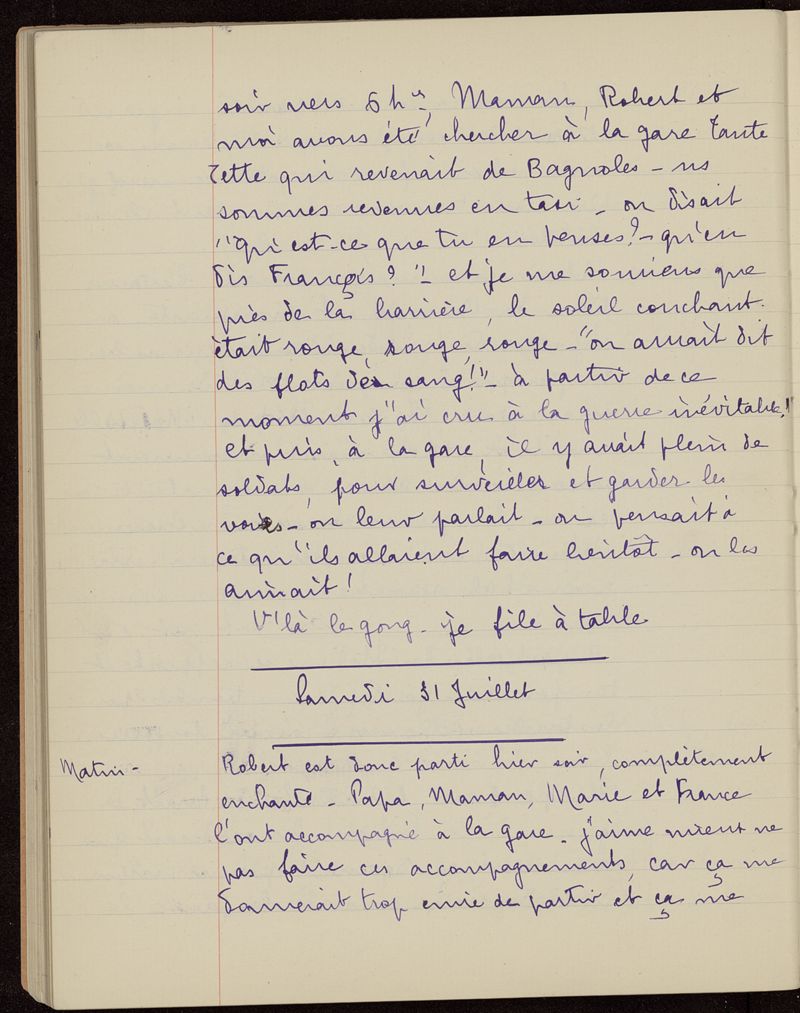 soir vers 6 hrs, Maman, Robert et
moi avons été chercher à la gare Tante
Tette qui revenait de Bagnoles - ns
sommes revenues en taxi - on disait
"qu'est-ce que tu en penses? - qu'en
dis François? "! - et je me souviens que
près de la barrière, le soleil couchant
était rouge, rouge, rouge - "on aurait dit
des flots de sang!" - à partir de ce
moment j'ai cru à la guerre inévitable!
et puis, à la gare, il y avait plein de
soldats, pour surveiller et garder les
voies - on leur parlait - on pensait à
ce qu'ils allaient faire bientôt - on les
aimait!
V'là le gong - je file à table
Samedi 31 Juillet
Matin -
Robert est donc parti hier soir, complètement
enchanté - Papa, Maman, Marie et France
l'ont accompagné à la gare - j'aime mieux ne
pas faire ces accompagnements, car ça me
donnerait trop envie de partir et ça me